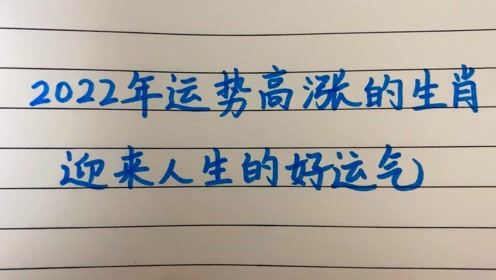 2022年运势高涨的生肖
迎来人生的好运气